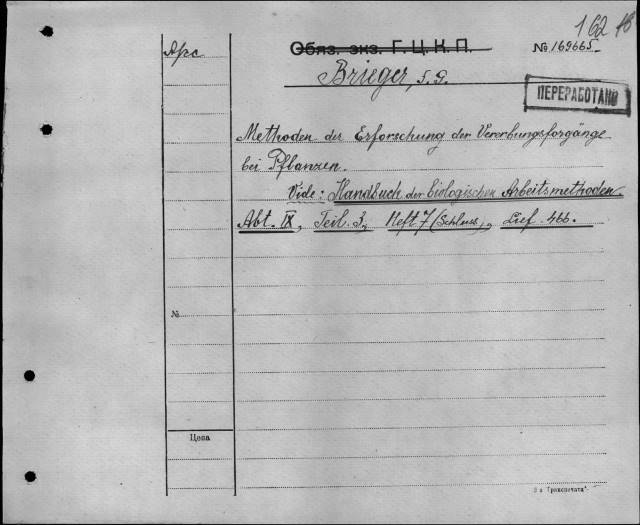 162
Арс
Обяз. экз. Г. Ц. К. П.
№ 169665
Brieger, F. G.
ПЕРЕРАБОТАНО
Methoden der Erforschung der Vererbungsforgänge
bei Pflanzen.
Vide: Handbuch der biologischen Arbeitsmethoden.
Abt. IX, Teil. 3, Heft 7 (Schluss), Lief. 466.
№
Цена